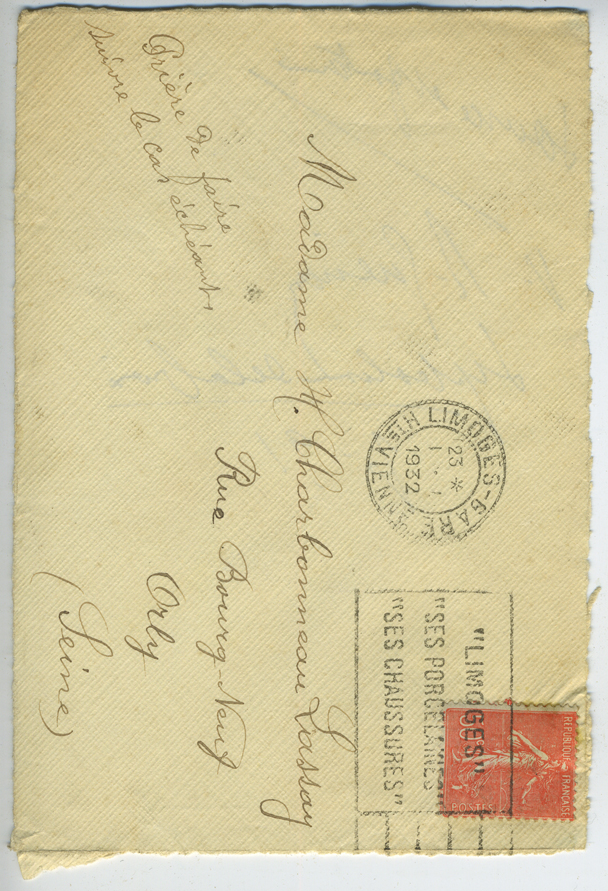 Prière de faire
suivre le cas échéant,
Madame H. Charbonneau Lassay
Rue Bourg-Neuf
Orly
(Seine)
LIMOGES-GARE
HTE VIENNE
23 *
1932
"LIMOGES"
"SES PORCELAINES"
"SES CHAUSSURES"
REPUBLIQUE FRANÇAISE
POSTES